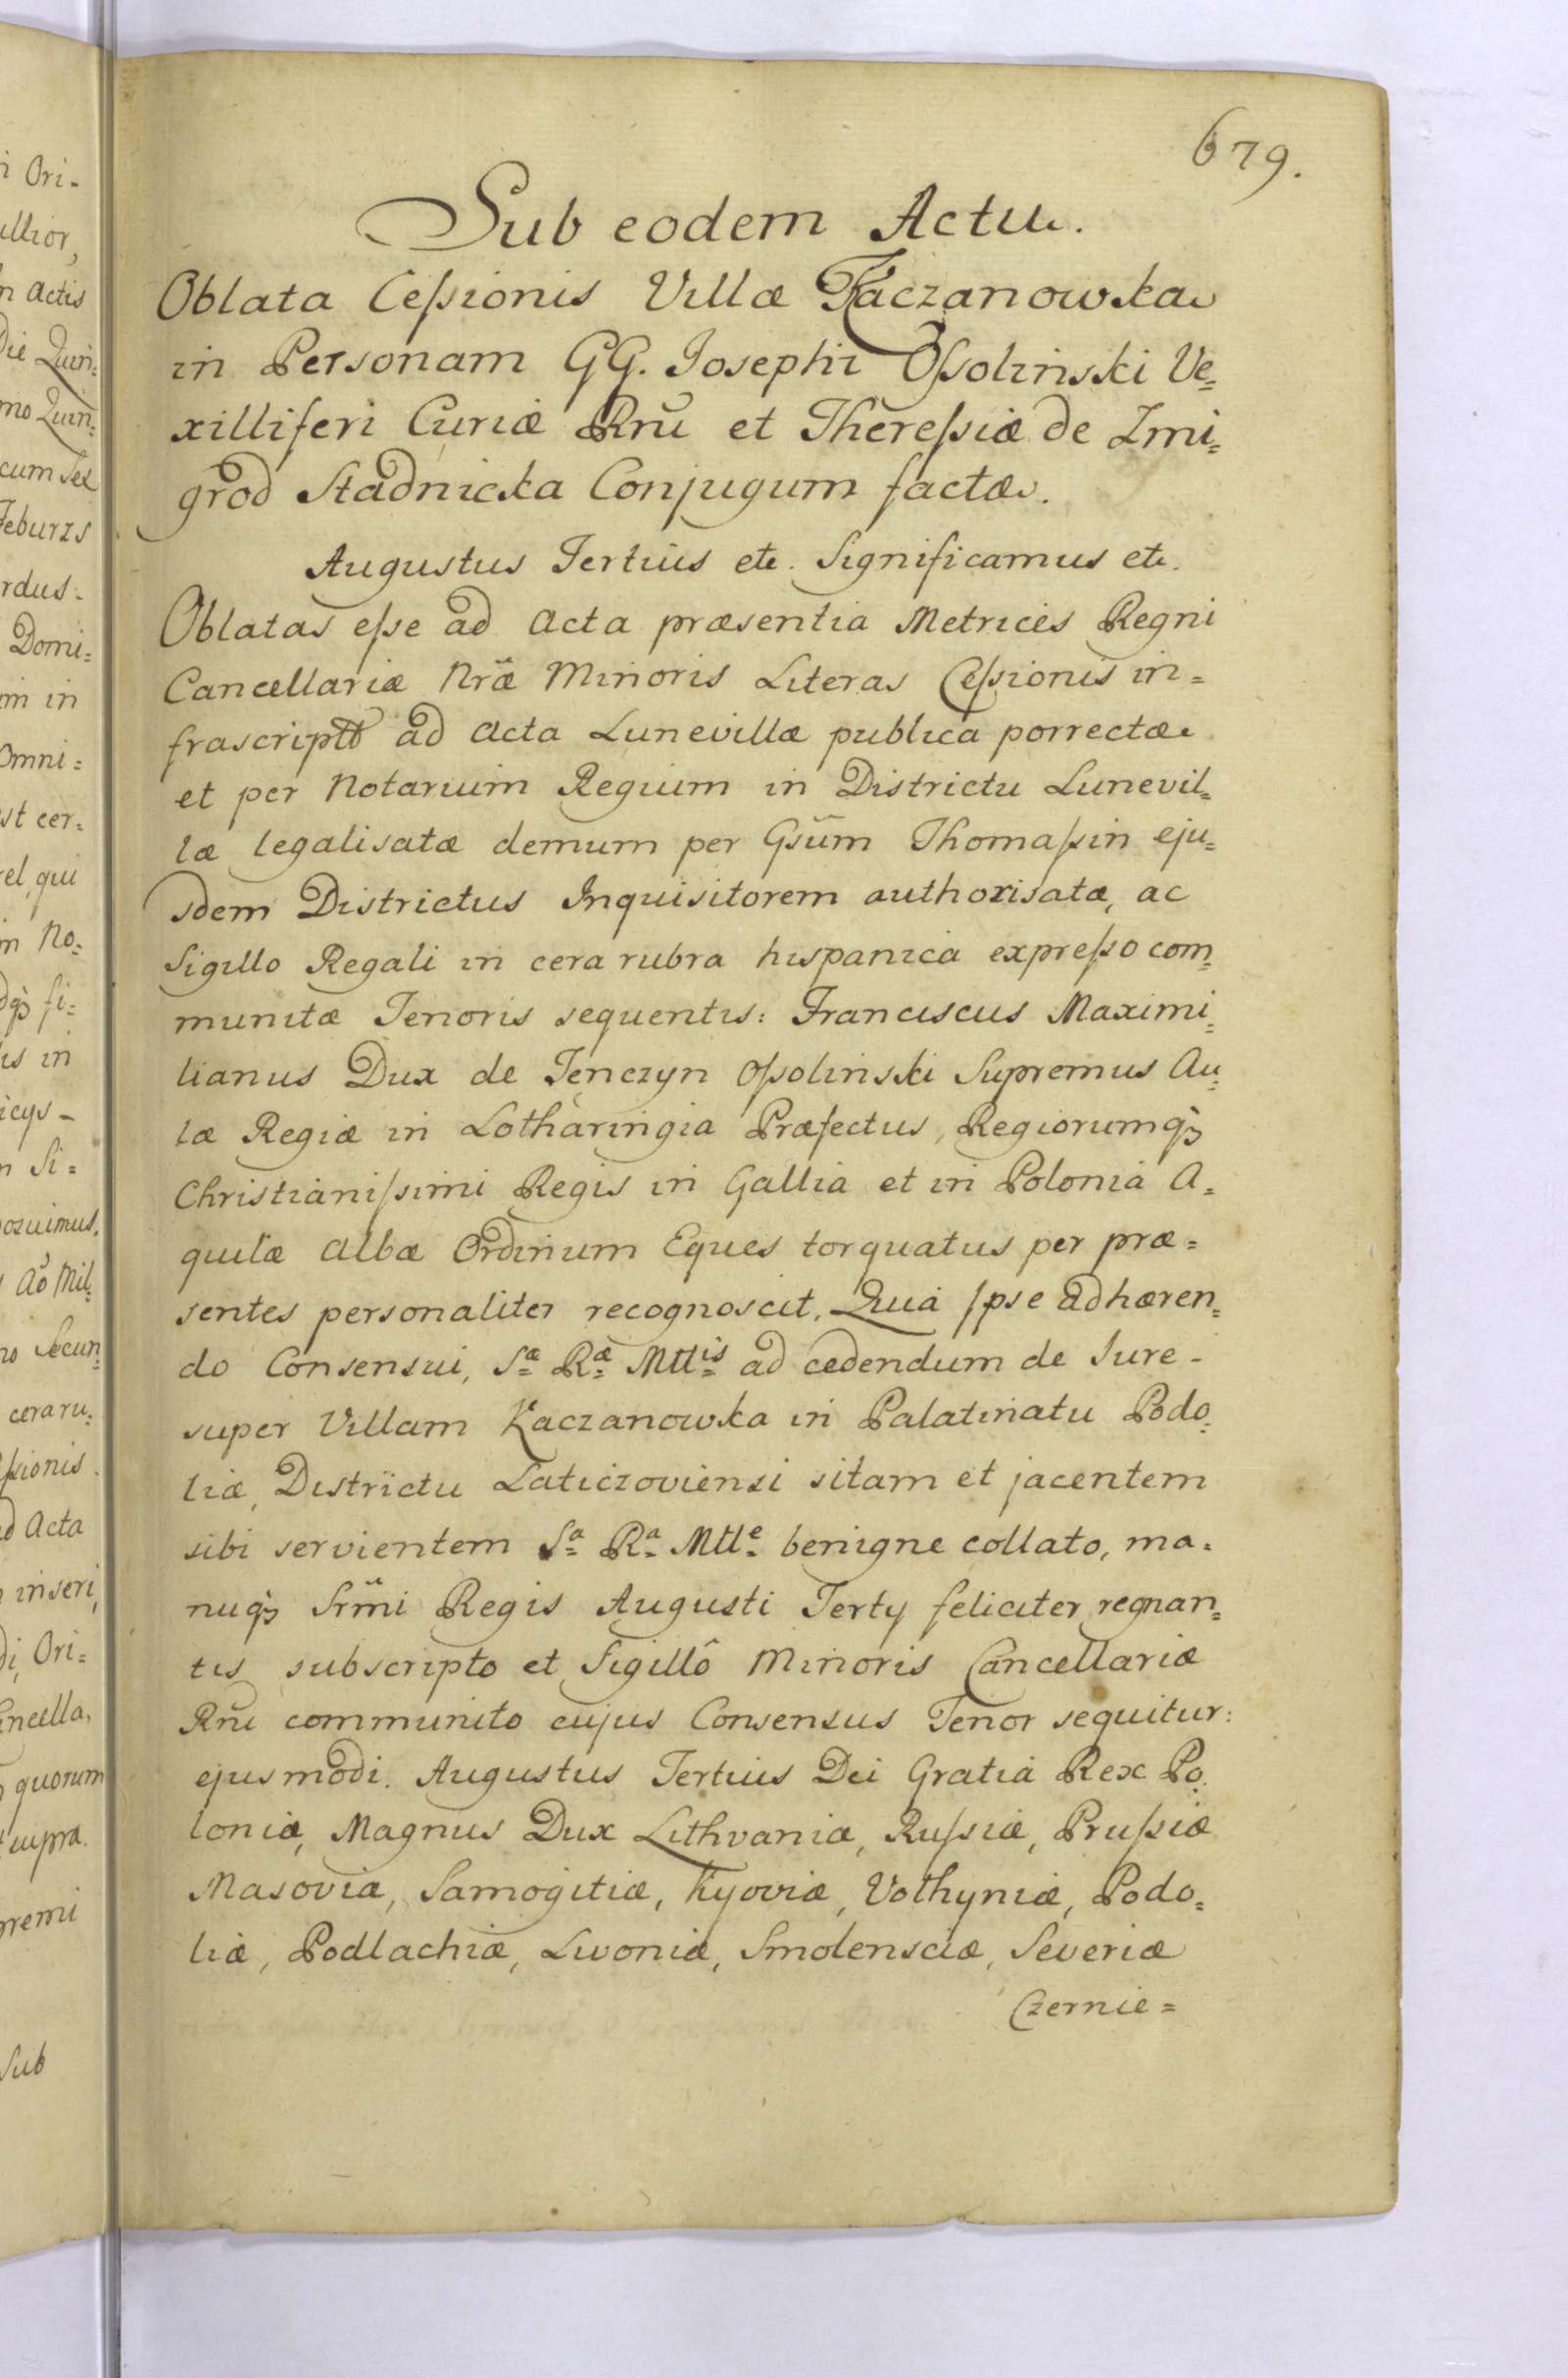 679.
Sub eodem Actu.
Oblata Ceſsionis Villæ Kaczanowka
in Personam GG. Josephi Oſsolinski Ve=
xilliferi Curiæ Rnŭ et Thereſsiæ de Zmi=
grod Stadnicka Conjugum factæ.
Augustus Tertius etc. Significamus etc.
Oblatas eſse ad Acta præsentia Metrices Regni
Cancellariæ Nræ Minoris Literas Ceſsionis in=
frascriptt ad Acta Lunevillæ publica porrectæ
et per Notarium Regium in Districtu Lunevil=
læ legalisatæ demum per Gsum Thomaſsin eju=
sdem Districtus Inquisitorem authorisatæ, ac
Sigillo Regali in cera rubra hispanica expreſso com=
munitæ Tenoris sequentis: Franciscus Maximi=
lianus Dux de Tenczyn Oſsolinski Supremus Au=
læ Regiæ in Lotharingia Præfectus, Regiorumqꝫ
Christianiſsimi Regis in Gallia et in Polonia A=
quilæ Albæ Ordinum Eques torquatus per præ=
sentes personaliter recognoscit. Quia Ipse adhæren=
do Consensui, Sæ Ræ Mttis ad cedendum de Jure
super Villam Kaczanowka in Palatinatu Podo=
liæ, Districtu Laticzoviensi sitam et jacentem
sibi servientem Sa Ra Mtte benigne collato, ma=
nuqꝫ Srmi Regis Augusti Tertÿ feliciter regnan=
tis subscripto et Sigillô Minoris Cancellariæ
Rni communito cujus Consensus Tenor sequitur:
ejusmodi. Augustus Tertius Dei Gratia Rex Po=
loniæ, Magnus Dux Lithvaniæ, Ruſsiæ, Pruſsiæ
Masoviæ, Samogitiæ, Kyoviæ, Volhyniæ, Podo=
liæ, Podlachiæ, Livoniæ, Smolensciæ, Severiæ
Czernie=